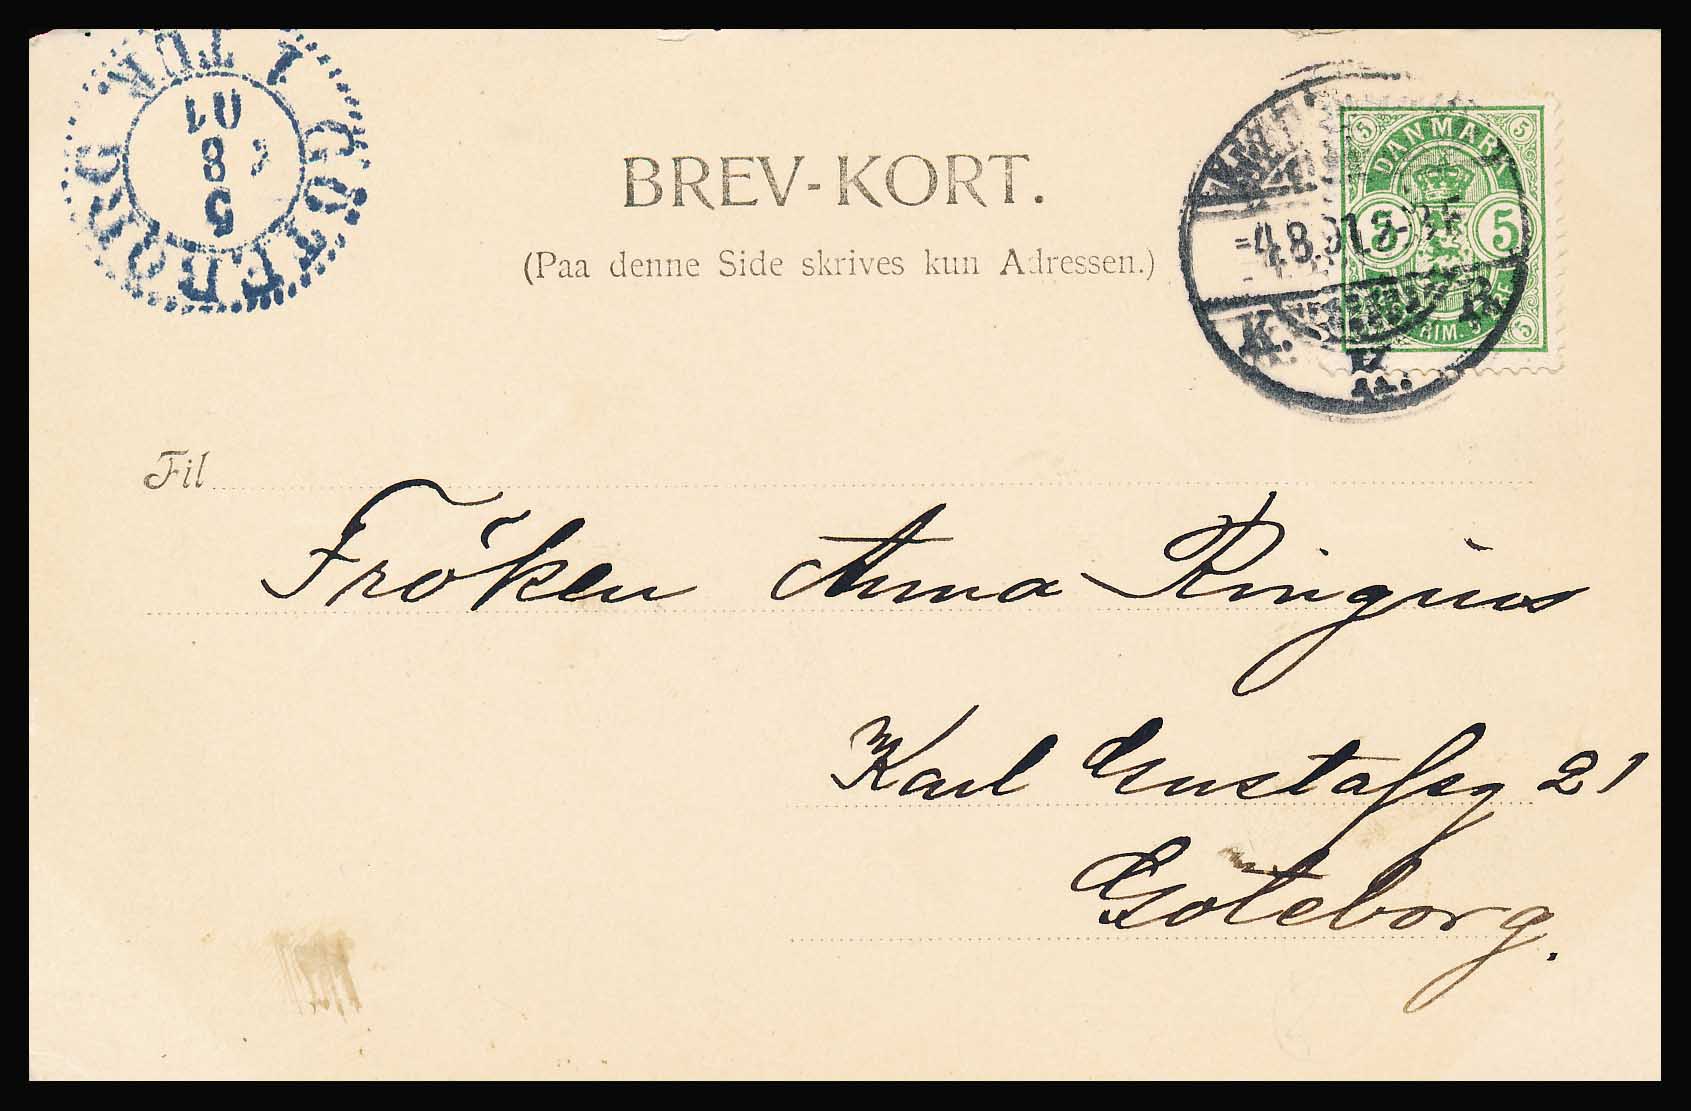 BREV-KORT.
(Paa denne Side skrives kun Adressen.)
GÖTEBORG 1 TUR
5
8
01
DANMARK
5 5
5 5
5
4.8.01.
K. B.
Til
Fröken Anna Ringius
Karl Gustafsg 21
Göteborg.